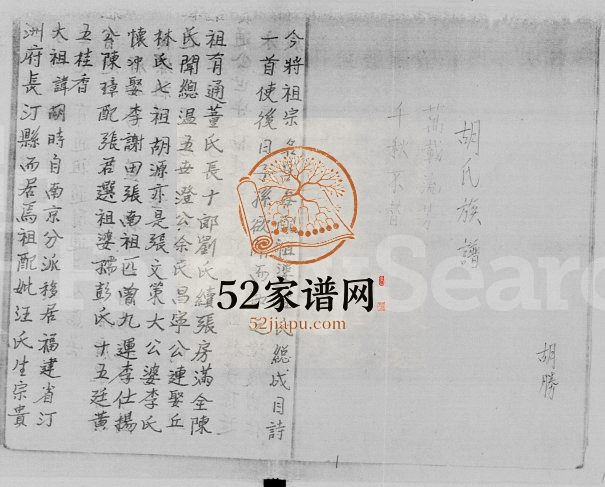 胡氏族譜
萬載流芳
千秋
胡勝
今將祖宗名 配祖婆 氏總成目詩
一首使後日子孫欲
祖有通董氏長十郎劉氏續張房滿全陳
氏聞總温五世澄公余氏昌寧公連娶丘
林氏七祖胡源亦是張文策大公婆李氏
懷冲娶李謝田張南祖匹曾九運李仕揚
公陳璋配張君選祖婆孺彭氏十五廷黄
五桂香
大祖諱胡時自南京分派移居福建省汀
洲府長汀縣而居焉祖配妣汪氏生宗貴
52家谱网
52jiapu.com
Sear